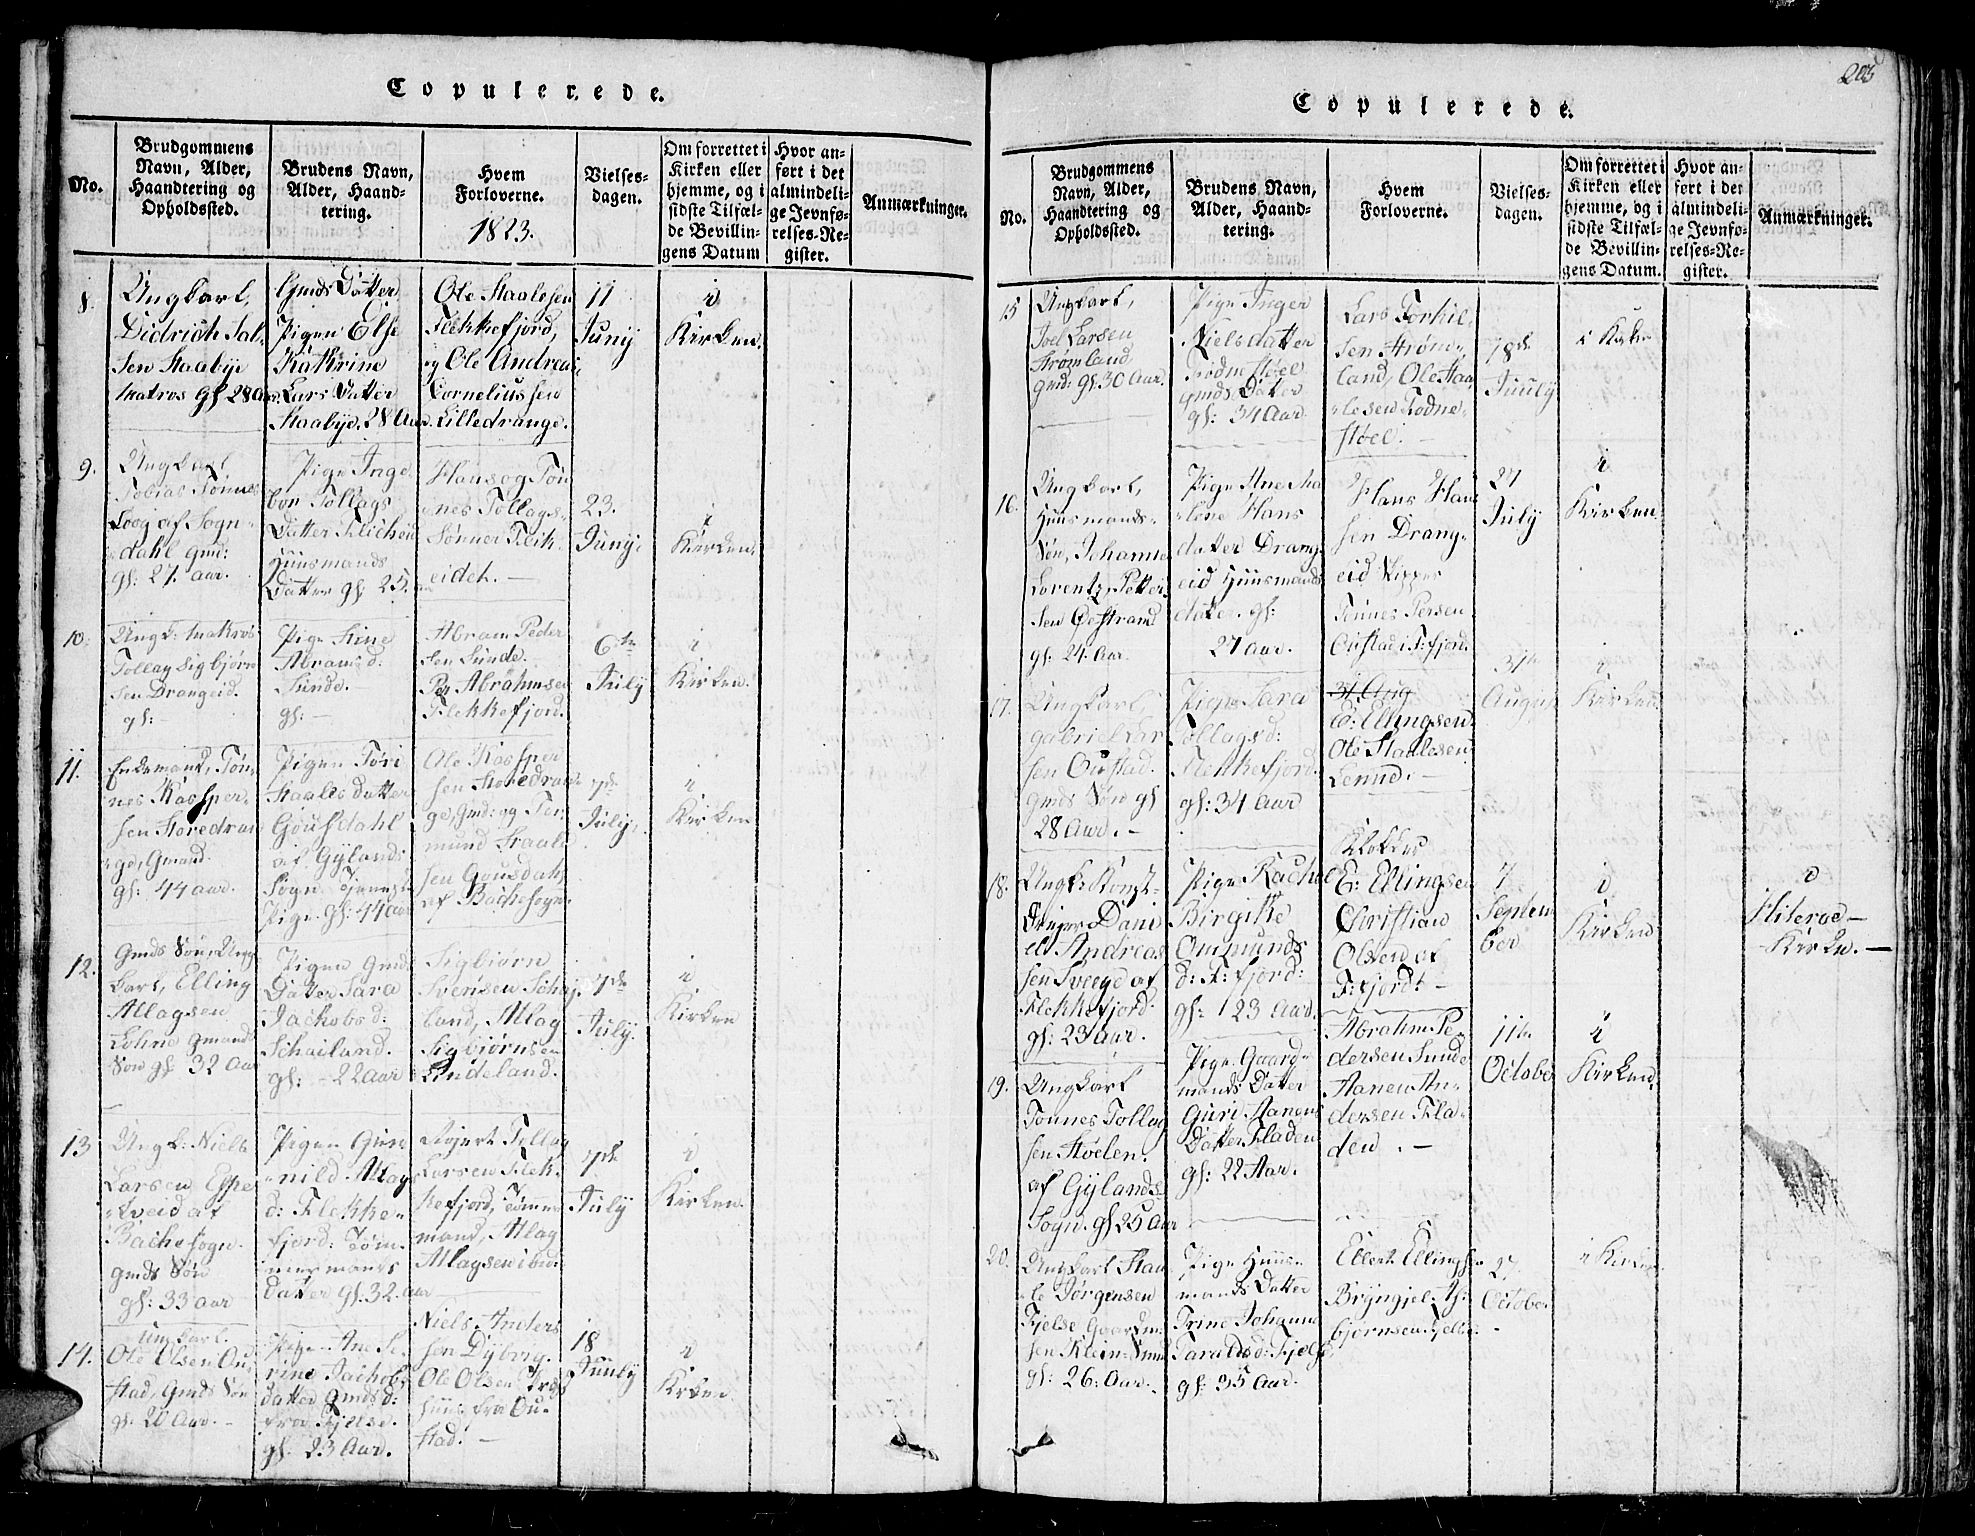 Copulerede.
No.
Brudgommens
Navn, Alder,
Haandtering og
Opholdssted.
Brudens Navn,
Alder, Haand-
tering.
Hvem
Forloverne.
1823.
Vielses-
dagen.
Om forrettet i
Kirken eller
hjemme, og i
sidste Tilfæl-
de Bevillin-
gens Datum
Hvor an-
ført i det
almindeli-
ge Jevnfø-
relses-Re-
gister.
Anmærkninger.
8.
Ungkarl,
Didrich Sal-
sen Staabye
Matros gl 28 Aar.
Gmds Datter
Pigen Else
Kathrine
Lars Datter
Staabye. 28 Aar.
Ole Staalesen
Flekkefjord,
og Ole Andreas
Corneliussen
Lilledrange.
11
Juny
i
Kirken.
9.
Ungkarl
Tobias Tønnes
Loog af Sogn-
dahl gmd:
gl: 27. aar.
Pige Inge
bor Tollags
Datter
Huusmands
Datter gl: 25.
Hans og Tøn
nes Tollags-
Sønner Fleik-
eideh. —
23.
Juny.
i
Kirken.
10.
Ungk: Matros
Tollag Sigbjørn
sen Drangeid.
gl: —
Pige Sine
Abramsd.
Sunde. —
gl: —
Abram Peder
sen Sunde.
Per Abrahmsen
Flekkefjord.
6te
July
i
Kirken.
11.
Enkemand, Tøn-
nes Kassper-
sen Storedran
ge, Gmand.
gl: 44 aar.
Pigen Tøri
Staales datter
Gousdahl
af Gylands
Sogn. Tjeneste
Pige. gl: 44 aar
Ole Kassper
sen Storedran
ge, Gmd: og Ter-
mund Staale
sen Gousdahl
af Bache Sogn.
7de
July.
i
Kirken
12.
Gmds Søn, Ung
karl, Elling
Atlagsen
Lohne gmands
Søn gl: 32 Aar
Pigen Gmds
Datter Sara
Jachobsd:
Schailand.
gl: - 22 aar
Sigbiørn
Svensen Schai-
land, Atlag
Sigbiørnsen
Lindeland.
7de
July.
i
Kirken
13
Ungk: Niels
Larsen Espe
tveid af
Bache sogn.
gmds Søn
gl: 33 aar
Pigen Gun
nild Atlags
d: Flekke-
fjord: Tøm-
mermands
datter gl: 32. aar
Sigert Tollag
Larsen Flek-
kefjord, Tømmer
mand, Atlag
Atlagsen ibid:
7de
July
i
Kirken.
14.
Ungkarl.
Ole Olsen Ou-
stad, Gmds Søn
gl: 20 Aar. -
Pige Ane Se-
rine Jachobs
datter Gmds d:
fra Fjelse.
gl. 23 Aar.
Niels Anders
sen Dyberg.
Ole Olsen
fra Ou-
stad. —
18
Juuly
i
Kirken.
205
Copulerede.
No.
Brudgommens
Navn, Alder,
Haandtering og
Opholdssted.
Brudens Navn,
Alder, Haand-
tering.
Hvem
Forloverne.
Vielses-
dagen.
Om forrettet i
Kirken eller
hjemme, og i
sidste Tilfæl-
de Bevillin-
gens Datum.
Hvor an-
ført i det
almindeli-
ge Jevnfø-
relses-Re-
gister.
Anmærkninger.
15
Ungkarl,
Joel Larsen
Strømland,
gmd: gl: 30 Aar.
Pige Inger
Nielsdatter
Rødne støel
gmds Datter
gl: 34 Aar.
Lars Torkil-
sen Strøm-
land, Ole Staa-
lesen Rødne-
støel. —
18de
Juuly
i Kirken
16.
Ungkarl,
Huusmands-
Søn, Johannes
Lorentz Petter
sen Østrand
gl: 24. Aar.
Pige Ane Ma
lene Hans
datter Drang
eid Huusmands
datter. gl:
27 aar.
Hans Han
sen Drang-
eid Skipper
Tønnes Persen
Oustad i F:fjord.
27
July
i
Kirken.
17.
Ungkarl,
Gabriel Lar
sen Oustad.
Gmds Søn gl
28 Aar. -
Pige Sara
Tollagsd:
Flekkefjord.
gl: 34 Aar
31. Aug
E: Ellingsen.
Ole Staalesen
Lenne. —
31te
August
i
Kirken
18.
Ungk: Konst-
Drejer Dani
el Andreas
sen Sveege af
Flekkefjord.
gl: 23 Aar.
Pige Rachel
Birgitte
Ommunds
d: F: fjord:
gl: 23 Aar.
Klokker
E: Ellingsen
Christian
Olsen af
F:fjord: -
7
Septem
ber
i
Kirken
i
Hiterøe —
Kirke. —
19.
Ungkarl
Tønnes Tollag
sen Støelen.
af Gylands
Sogn. gl 25 Aar
Pige Gaard-
mands Datter
Guri Aanens
Datter Fladen
gl: 22 Aar.
Abrahm Pe-
dersen Sunde
Aanen An-
dersen Fla-
den. —
11te
October
i
Kirken.
20.
Ungkarl Staa-
le Jørgensen
Fjelse Gaardm:
sen Klein-Smed
gl: 26: Aar.
Pige Huus-
mands Datter
Trine Johanne
Taraldsd: Fjelse
gl: 35 Aar.
Ellert Ellingsen
Bryngjel. As-
bjørnsen Fjelse.
27.
October
-
i Kirken